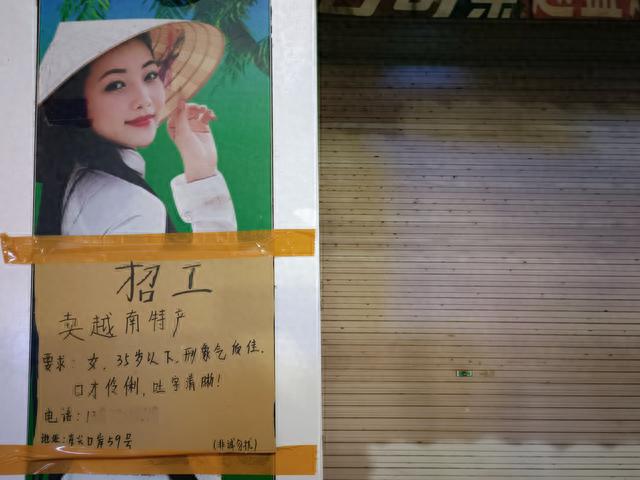 招工
卖越南特产
要求: 女, 35岁以下, 形象气质佳.
口才伶俐, 吐字清晰!
电话: 1
地址: 口岸59号
(非诚勿扰)